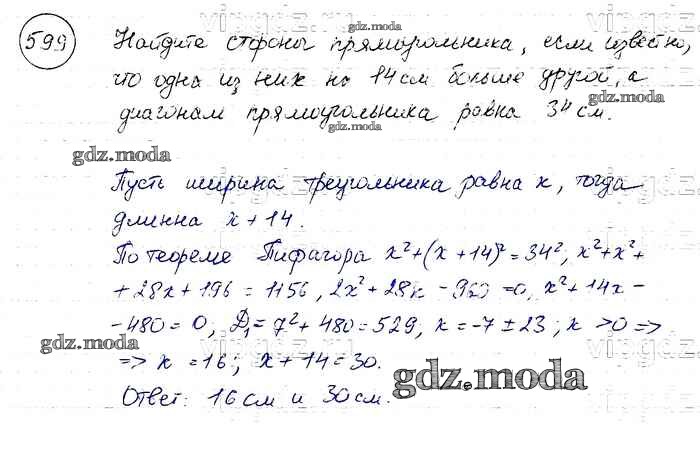 599 Найдите стороны прямоугольника, если известно,
что одна из них на 14 см больше другой, а
диагонали прямоугольника равна 34 см.
Пусть ширина треугольника равна x, тогда
длинна x + 14.
По теореме Пифагора x² + (x + 14)² = 34², x² + x² +
+ 28x + 196 = 1156, 2x² + 28x - 960 = 0, x² + 14x -
- 480 = 0, D₁ = 7² + 480 = 529, x = -7 ± 23; x > 0 =>
=> x = 16; x + 14 = 30.
Ответ: 16 см и 30 см.
gdz.moda
gdz.moda
gdz.moda
gdz.moda
gdz.moda
gdz.moda